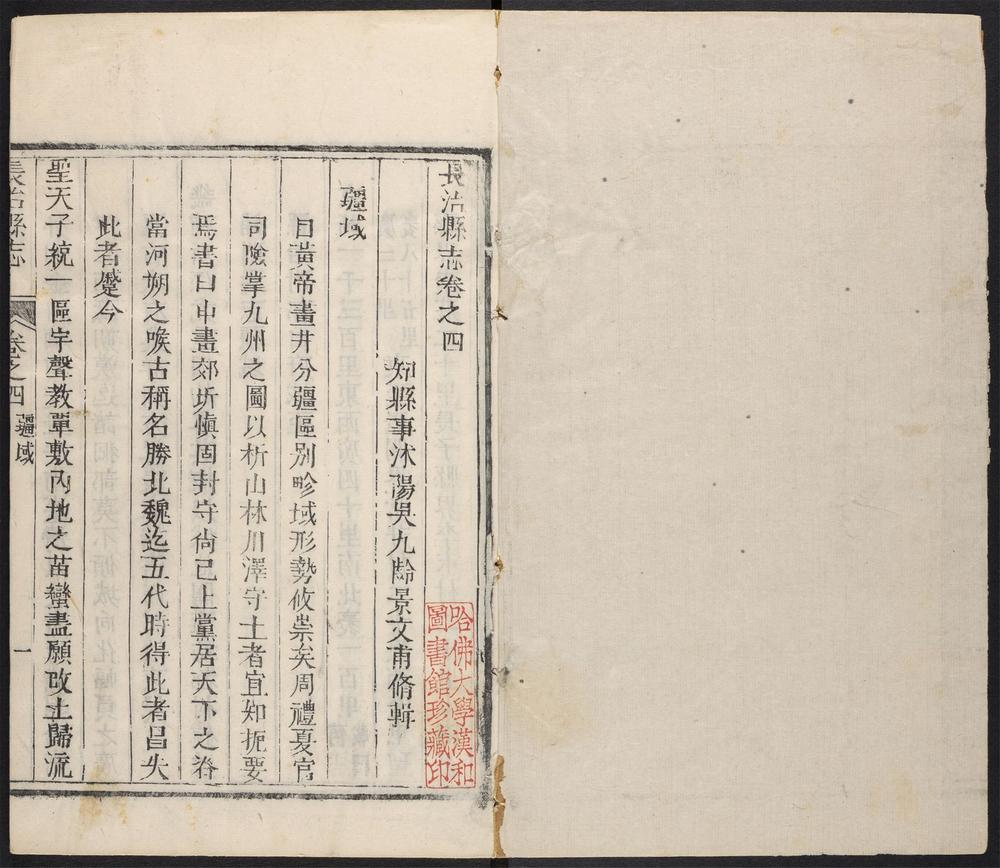 長治縣志卷之四
知縣事沭陽吳九齡景文甫脩輯
疆域
自黃帝畫井分疆區別畛域形勢攸崇矣周禮夏官
司險掌九州之圖以析山林川澤守土者宜知扼要
焉書曰申畫郊圻慎固封守尙已上黨居天下之脊
當河朔之喉古稱名勝北魏迄五代時得此者昌失
此者蹙今
聖天子統一區宇聲教覃敷內地之苗蠻盡願改土歸流
長治縣志
卷之四
疆域
一
哈佛大學漢和
圖書館珍藏印